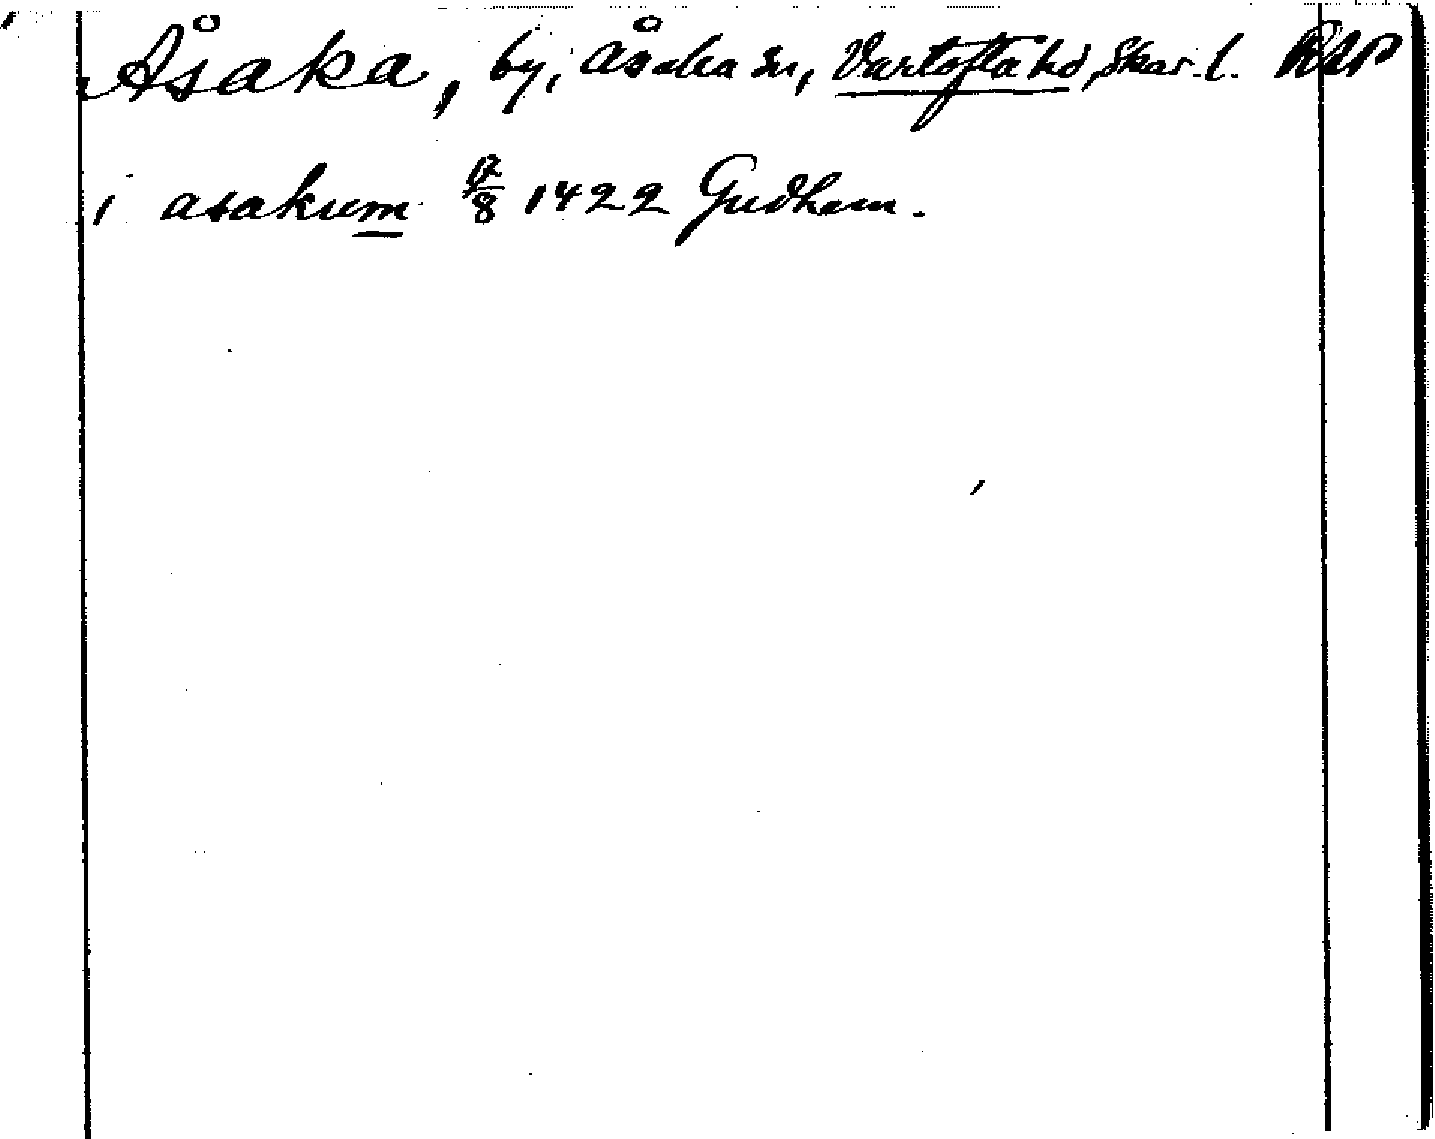 Åsaka, by, Åsaka sn, Vartofta hd, Skar. l. RAP
i asakum /8 1422 Gudhem.